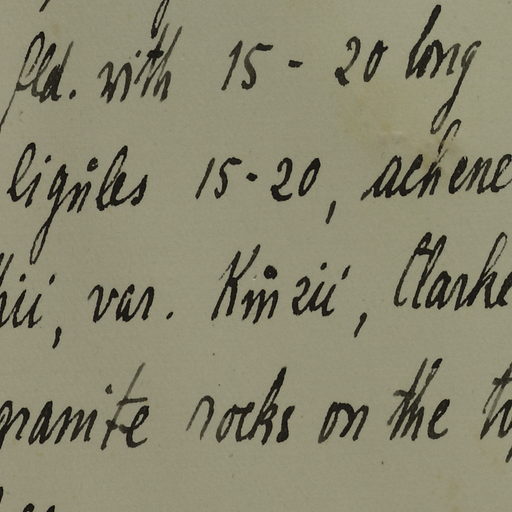 fld. with 15 - 20 long
ligůles 15-20, achene
hii, var. Kůnzii, Clarke
granite rocks on the to